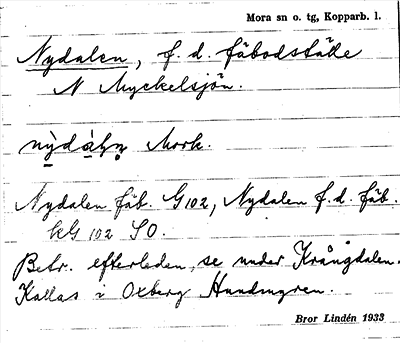 Mora sn o. tg, Kopparb. l.
Nydalen, f. d. fäbodställe
N Myckelsjön.
nỳdàḷṇ Mork.
Nydalen fäb. G102, Nydalen f. d. fäb.
kG 102 SO.
Betr. efterleden, se under Krångdalen.
Kallas i Oxberg Hundmyren.
Bror Lindén 1933